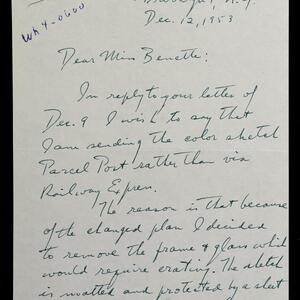 WA 4-0600
N.Y.
Dec. 12, 1953
Dear Miss Benette:
In reply to your letter of
Dec. 9 I wish to say that
I am sending the color sketch
Parcel Post rather than via
Railway Express.
The reason is that because
of the changed plan I decided
to remove the frame & glass which
would require crating. The sketch
is matted and protected by a sheet